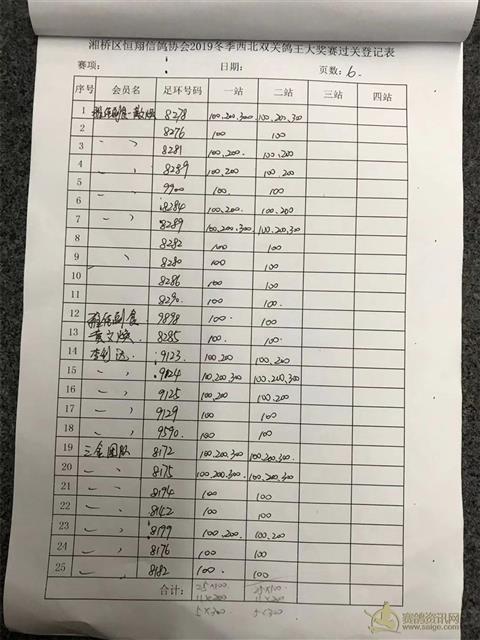 湘桥区恒翔信鸽协会2019冬季西北双关鸽王大奖赛过关登记表
赛项： 日期： 页数：6.
序号 会员名 足环号码 一站 二站 三站 四站
1 8278 100.200.300 100.200.300
2 8276 100 100
3 〃 8281 100.200. 100.200
4 〃 8289 100.200 100 200
5 9900 100 100
6 8284 100.200 100.200
7 〃 8289 100.200.300 100.200.300
8 8282 100 100
9 〃 8280 100 100
10 8286 100 100
11 8290 100 100
12 9898 100 100
13 黄文 8285 100 100
14 李 9123 100.200 100.200
15 〃 9124 100.200.300 100.200.300
16 〃 9125 100.200 100.200
17 〃 9129 100 100
18 〃 9590 100 100
19 三金团队 8172 100.200.300 100.200.300
20 〃 8175 100.200.300 100.200.300
21 〃 8194 100 100
22 〃 8142 100 100
23 〃 8199 100.200 100.200
24 〃 8176 100 100
25 〃 8182 100 100
合计： 25×100 25×100
11×200 11×200
5×300 5×300
赛鸽资讯网
www.saige.com